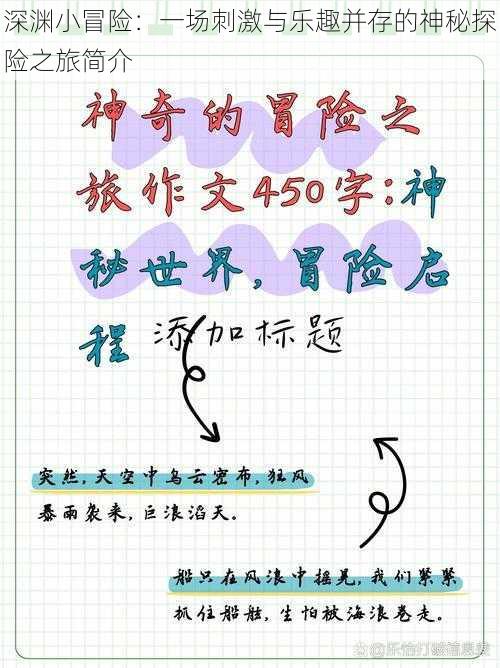 深渊小冒险：一场刺激与乐趣并存的神秘探
险之旅简介
神奇的冒险之
旅作文450字:神
秘世界,冒险启
程
添加标题
突然,天空中乌云密布,狂风
暴雨袭来,巨浪滔天。
船只在风浪中摇晃,我们紧紧
抓住船舷,生怕被海浪卷走。